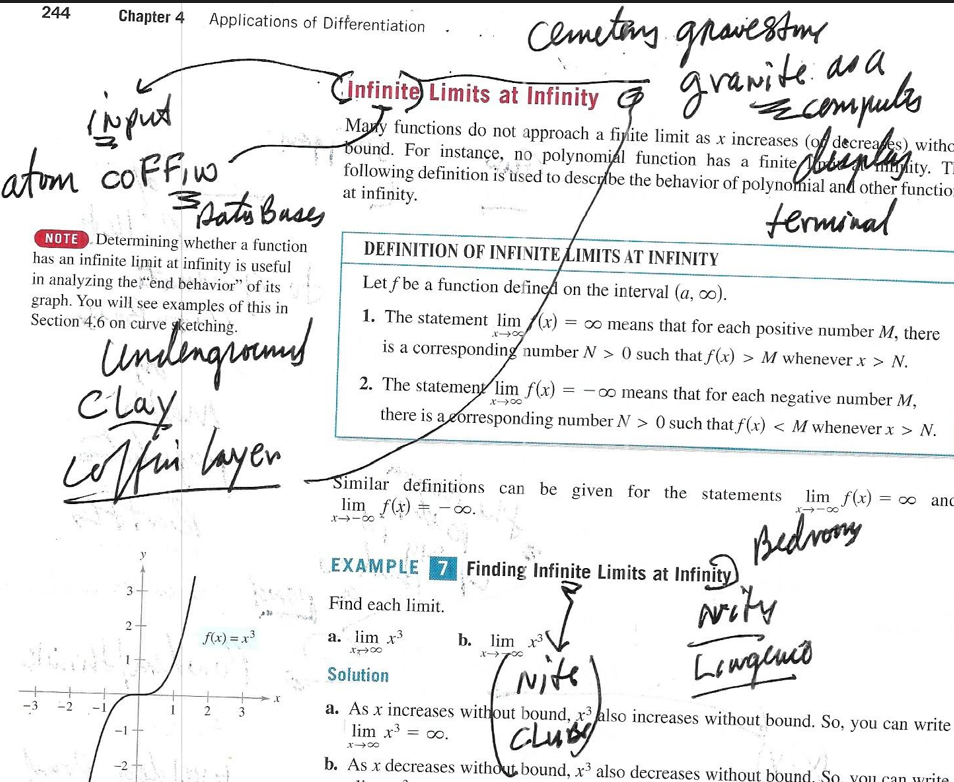 244 Chapter 4 Applications of Differentiation
cemetery gravestone
granite as a
computer
display
terminal
input
atom coffin
Data Bases
Infinite Limits at Infinity
Many functions do not approach a finite limit as x increases (or decreases) witho
bound. For instance, no polynomial function has a finite limit at infinity. T
following definition is used to describe the behavior of polynomial and other functio
at infinity.
NOTE Determining whether a function
has an infinite limit at infinity is useful
in analyzing the "end behavior" of its
graph. You will see examples of this in
Section 4.6 on curve sketching.
Underground
Clay
coffin layer
DEFINITION OF INFINITE LIMITS AT INFINITY
Let f be a function defined on the interval (a, ∞).
1. The statement lim x→∞ f(x) = ∞ means that for each positive number M, there
is a corresponding number N > 0 such that f(x) > M whenever x > N.
2. The statement lim x→∞ f(x) = −∞ means that for each negative number M,
there is a corresponding number N > 0 such that f(x) < M whenever x > N.
Similar definitions can be given for the statements lim x→−∞ f(x) = ∞ and
lim x→−∞ f(x) = −∞.
EXAMPLE 7 Finding Infinite Limits at Infinity
Find each limit.
a. lim x→∞ x³ b. lim x→−∞ x³
Solution
a. As x increases without bound, x³ also increases without bound. So, you can write
lim x→∞ x³ = ∞.
b. As x decreases without bound, x³ also decreases without bound. So, you can write
Nite
Clubs
nity
y
3
2
1
f(x) = x³
−3 −2 −1 1 2 3 x
−1
−2